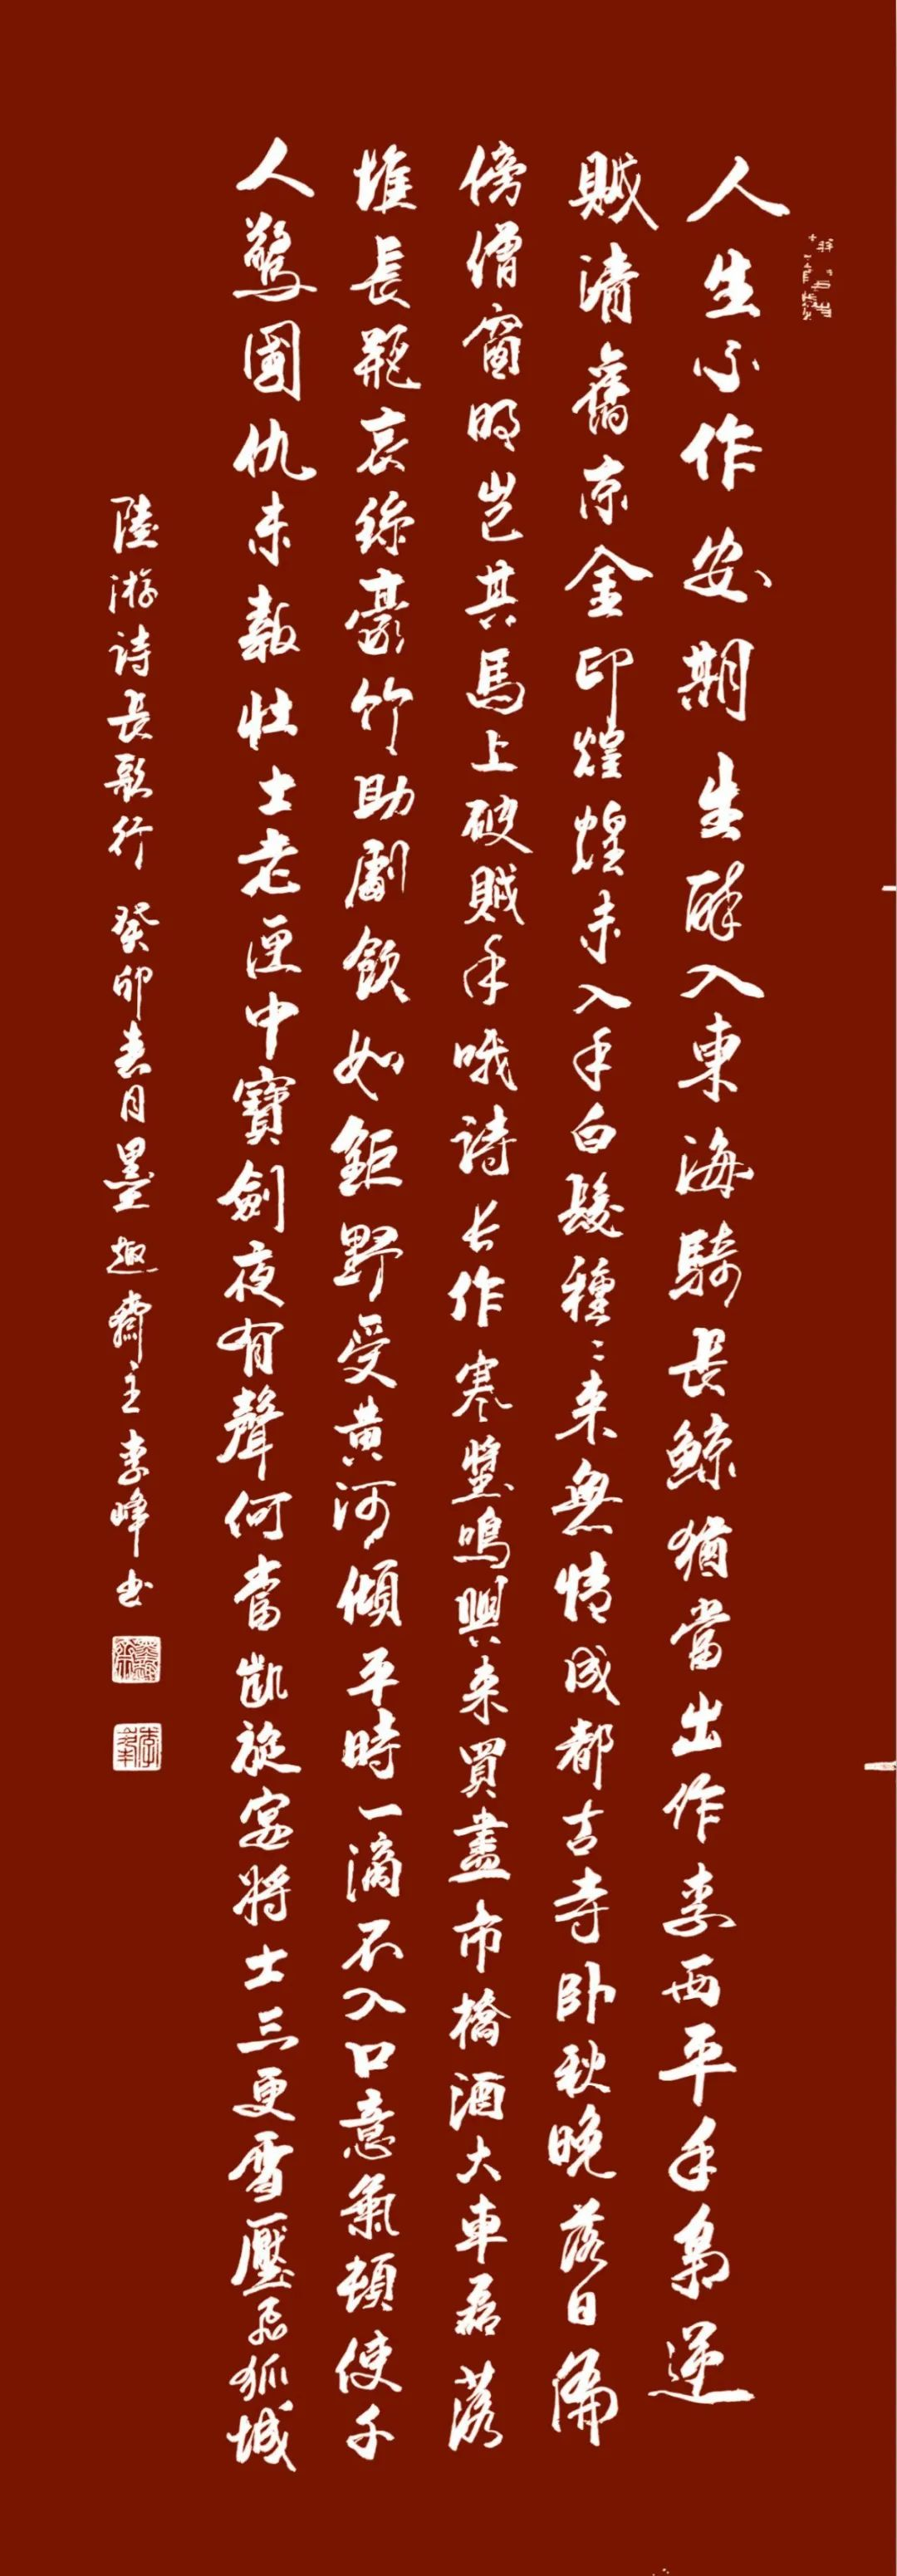 人生不作安期生醉入東海騎長鯨猶當出作李西平手梟逆
賊清舊京金印煌煌未入手白髮種〻来無情成都古寺卧秋晚落日偏
傍僧窗明豈其馬上破賊手哦詩長作寒螿鳴興来買盡市橋酒大車磊落
堆長瓶哀絲豪竹助劇飲如鉅野受黄河傾平時一滴不入口意氣頓使千
人驚國仇未報壯士老匣中寶劍夜有聲何當凱旋宴將士三更雪壓飛狐城
陸游詩長歌行 癸卯春月墨趣齋主李峰书